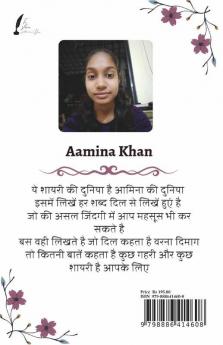 Aamina Khan
ये शायरी की दुनिया है आमिना की दुनिया
इसमें लिखें हर शब्द दिल से लिखें हुएं है
जो की असल जिंदगी में आप महसूस भी कर
सकते है
बस वही लिखते है जो दिल कहता है वरना दिमाग
तो कितनी बातें कहता है कुछ गहरी और कुछ
शायरी है आपके लिए
Price Rs 195.00
ISBN 979-888641460-8
9 798886 414608